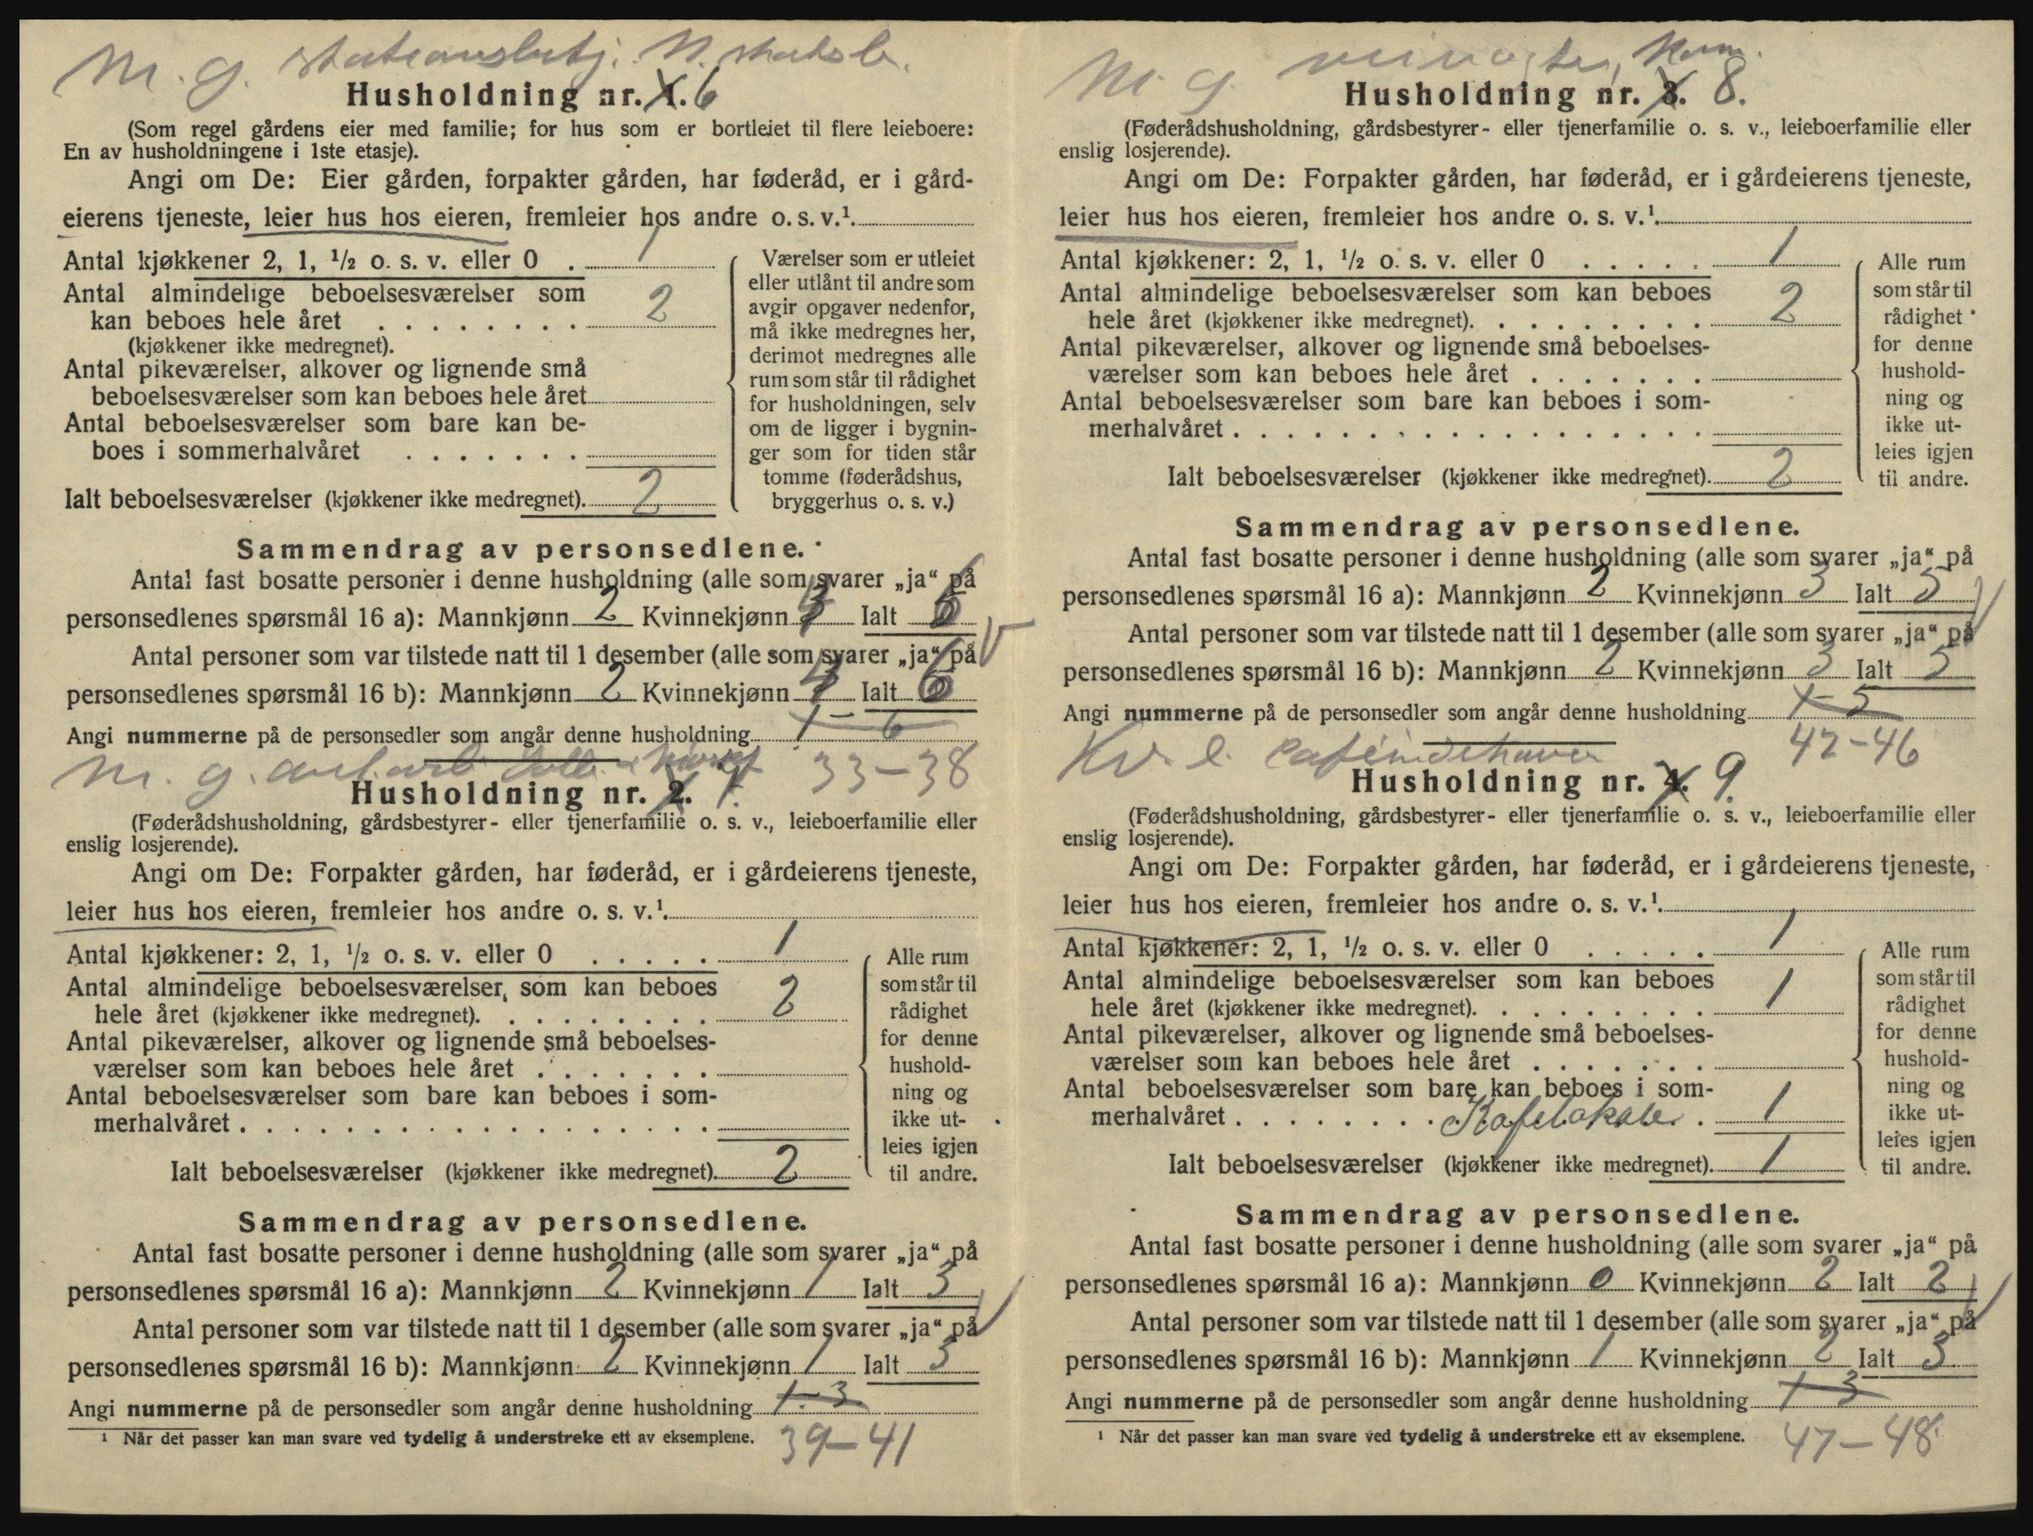 M. g. stationsbetj. N. statsb.
Husholdning nr. 1. 6
(Som regel gårdens eier med familie; for hus som er bortleiet til flere leieboere:
En av husholdningene i 1ste etasje).
Angi om De: Eier gården, forpakter gården, har føderåd, er i gård-
eierens tjeneste, leier hus hos eieren, fremleier hos andre o. s. v.¹.
Antal kjøkkener 2, 1, ½ o. s. v. eller 0 . 1
Antal almindelige beboelsesværelser som
kan beboes hele året . . . . . . . . 2
(kjøkkener ikke medregnet).
Antal pikeværelser, alkover og lignende små
beboelsesværelser som kan beboes hele året
Antal beboelsesværelser som bare kan be-
boes i sommerhalvåret . . . . . . .
Ialt beboelsesværelser (kjøkkener ikke medregnet). 2
Værelser som er utleiet
eller utlånt til andre som
avgir opgaver nedenfor,
må ikke medregnes her,
derimot medregnes alle
rum som står til rådighet
for husholdningen, selv
om de ligger i bygnin-
ger som for tiden står
tomme (føderådshus,
bryggerhus o. s. v.)
Sammendrag av personsedlene.
Antal fast bosatte personer i denne husholdning (alle som svarer „ja“ på
personsedlenes spørsmål 16 a): Mannkjønn 2 Kvinnekjønn 4 Ialt 6
Antal personer som var tilstede natt til 1 desember (alle som svarer „ja“ på
personsedlenes spørsmål 16 b): Mannkjønn 2 Kvinnekjønn 4 Ialt 6
Angi nummerne på de personsedler som angår denne husholdning 1-6
33-38
M. g.
Husholdning nr. 2. 7.
(Føderådshusholdning, gårdsbestyrer- eller tjenerfamilie o. s. v., leieboerfamilie eller
enslig losjerende).
Angi om De: Forpakter gården, har føderåd, er i gårdeierens tjeneste,
leier hus hos eieren, fremleier hos andre o. s. v.¹.
Antal kjøkkener: 2, 1, ½ o. s. v. eller 0 . . . . . 1
Antal almindelige beboelsesværelser som kan beboes
hele året (kjøkkener ikke medregnet). . . . . . . . . 2
Antal pikeværelser, alkover og lignende små beboelses-
værelser som kan beboes hele året . . . . . . .
Antal beboelsesværelser som bare kan beboes i som-
merhalvåret . . . . . . . . . . . . . . . . . .
Ialt beboelsesværelser (kjøkkener ikke medregnet). 2
Alle rum
som står til
rådighet
for denne
hushold-
ning og
ikke ut-
leies igjen
til andre.
Sammendrag av personsedlene.
Antal fast bosatte personer i denne husholdning (alle som svarer „ja“ på
personsedlenes spørsmål 16 a): Mannkjønn 2 Kvinnekjønn 1 Ialt 3
Antal personer som var tilstede natt til 1 desember (alle som svarer „ja“ på
personsedlenes spørsmål 16 b): Mannkjønn 2 Kvinnekjønn 1 Ialt 3
Angi nummerne på de personsedler som angår denne husholdning 1-3
¹ Når det passer kan man svare ved tydelig å understreke ett av eksemplene. 39-41
M. g.
Husholdning nr. 3. 8.
(Føderådshusholdning, gårdsbestyrer- eller tjenerfamilie o. s. v., leieboerfamilie eller
enslig losjerende).
Angi om De: Forpakter gården, har føderåd, er i gårdeierens tjeneste,
leier hus hos eieren, fremleier hos andre o. s. v.¹.
Antal kjøkkener: 2, 1, ½ o. s. v. eller 0 . . . . . 1
Antal almindelige beboelsesværelser som kan beboes
hele året (kjøkkener ikke medregnet). . . . . . . . . 2
Antal pikeværelser, alkover og lignende små beboelses-
værelser som kan beboes hele året . . . . . . .
Antal beboelsesværelser som bare kan beboes i som-
merhalvåret . . . . . . . . . . . . . . . . . .
Ialt beboelsesværelser (kjøkkener ikke medregnet). 2
Alle rum
som står til
rådighet
for denne
hushold-
ning og
ikke ut-
leies igjen
til andre.
Sammendrag av personsedlene.
Antal fast bosatte personer i denne husholdning (alle som svarer „ja“ på
personsedlenes spørsmål 16 a): Mannkjønn 2 Kvinnekjønn 3 Ialt 5
Antal personer som var tilstede natt til 1 desember (alle som svarer „ja“ på
personsedlenes spørsmål 16 b): Mannkjønn 2 Kvinnekjønn 3 Ialt 5
Angi nummerne på de personsedler som angår denne husholdning 1-5
42-46
Kv. e. caféindehaver
Husholdning nr. 4. 9.
(Føderådshusholdning, gårdsbestyrer- eller tjenerfamilie o. s. v., leieboerfamilie eller
enslig losjerende).
Angi om De: Forpakter gården, har føderåd, er i gårdeierens tjeneste,
leier hus hos eieren, fremleier hos andre o. s. v.¹.
Antal kjøkkener: 2, 1, ½ o. s. v. eller 0 . . . . . 1
Antal almindelige beboelsesværelser som kan beboes
hele året (kjøkkener ikke medregnet). . . . . . . . . 1
Antal pikeværelser, alkover og lignende små beboelses-
værelser som kan beboes hele året . . . . . . .
Antal beboelsesværelser som bare kan beboes i som-
merhalvåret . . . . . . . . Kafelokale . 1
Ialt beboelsesværelser (kjøkkener ikke medregnet). 1
Alle rum
som står til
rådighet
for denne
hushold-
ning og
ikke ut-
leies igjen
til andre.
Sammendrag av personsedlene.
Antal fast bosatte personer i denne husholdning (alle som svarer „ja“ på
personsedlenes spørsmål 16 a): Mannkjønn 0 Kvinnekjønn 2 Ialt 2
Antal personer som var tilstede natt til 1 desember (alle som svarer „ja“ på
personsedlenes spørsmål 16 b): Mannkjønn 1 Kvinnekjønn 2 Ialt 3
Angi nummerne på de personsedler som angår denne husholdning 1-3
¹ Når det passer kan man svare ved tydelig å understreke ett av eksemplene. 47-48